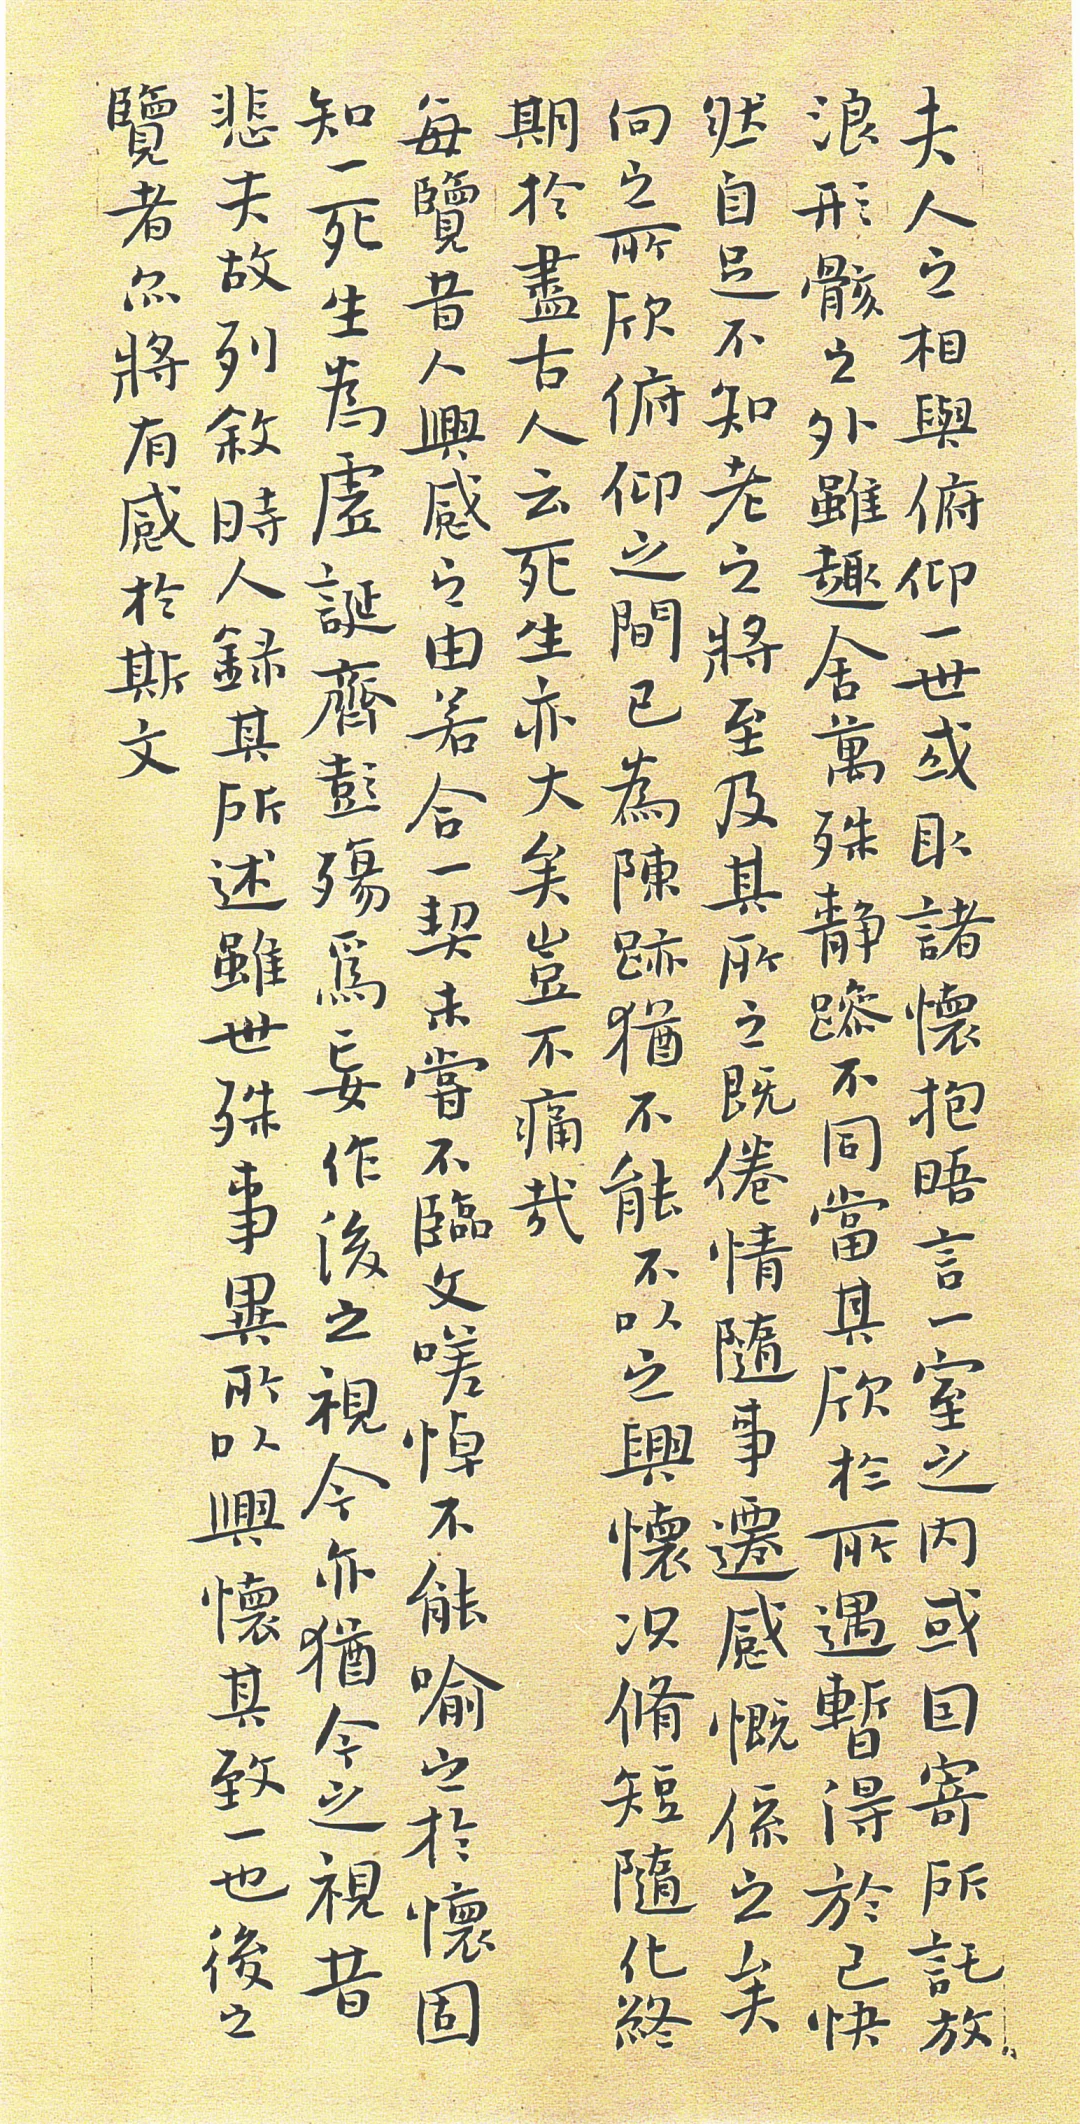 夫人之相與俯仰一世或取諸懷抱晤言一室之內或因寄所託放
浪形骸之外雖趣舍萬殊静躁不同當其欣於所遇暫得於己快
然自足不知老之將至及其所之既倦情隨事遷感慨係之矣
向之所欣俯仰之間已為陳跡猶不能不以之興懷況脩短隨化終
期於盡古人云死生亦大矣豈不痛哉
每覽昔人興感之由若合一契未嘗不臨文嗟悼不能喻之於懷固
知一死生為虛誕齊彭殤爲妄作後之視今亦猶今之視昔
悲夫故列敘時人録其所述雖世殊事異所以興懷其致一也後之
覽者亦將有感於斯文